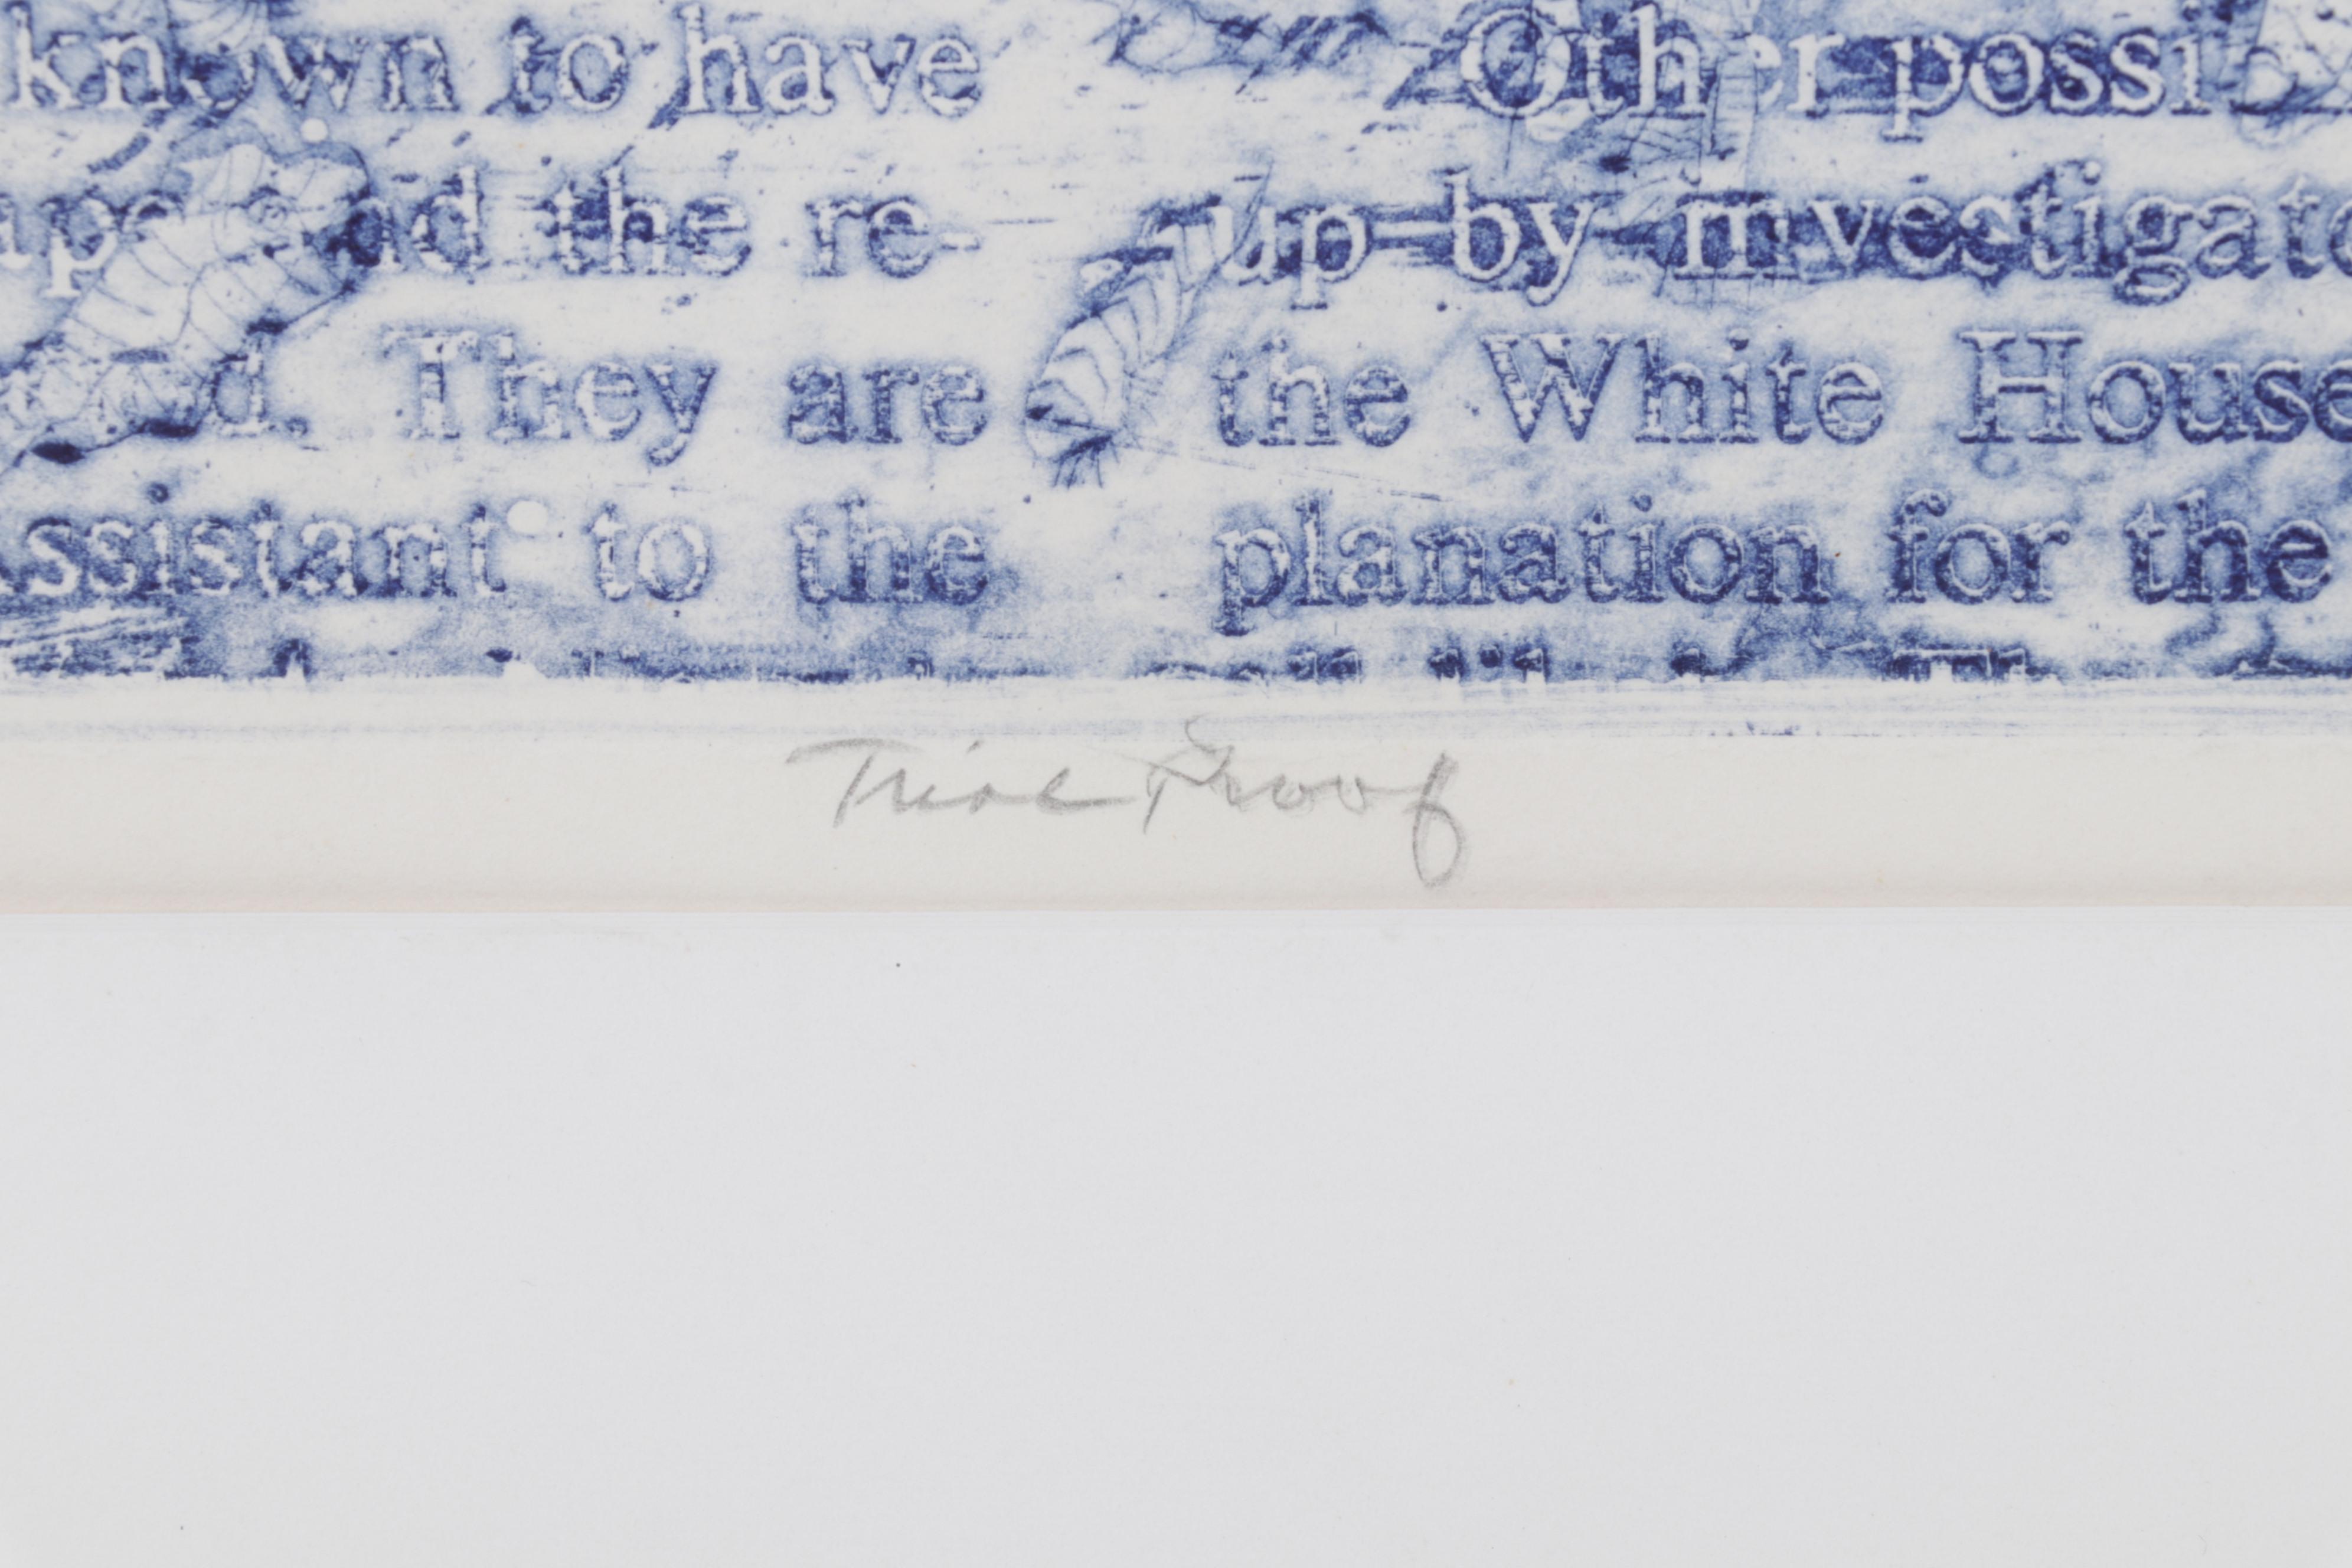 known to have
Other possi
the re-
up by investigat
d. They are
the White House
ssistant to the
planation for the
Trial Proof